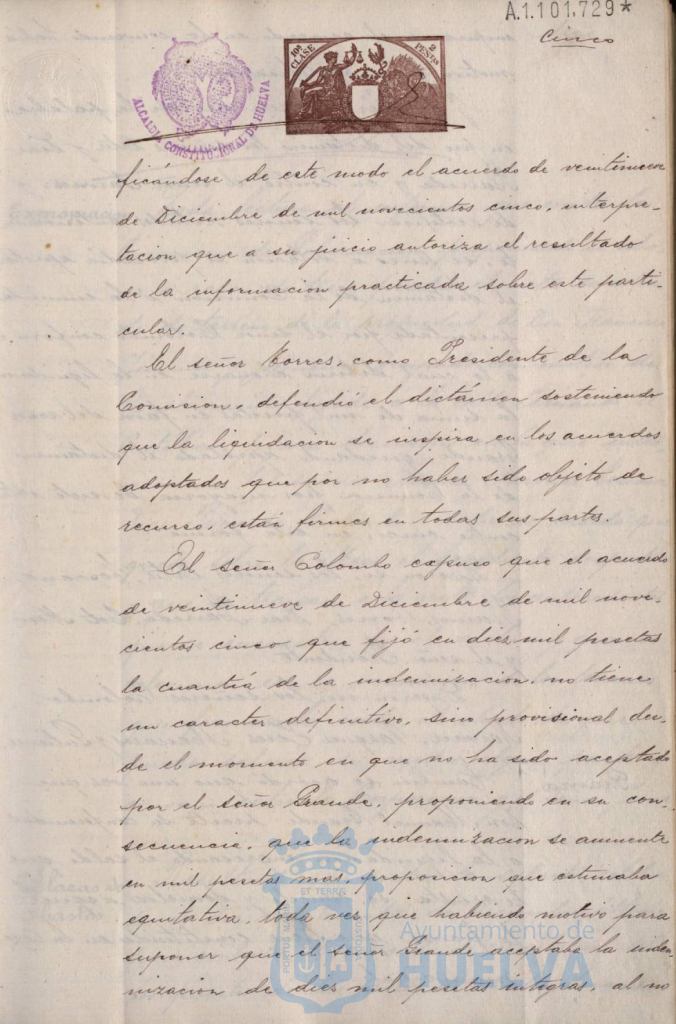 A.1.101.729*
Cinco
10ª CLASE
2 PESETAS
ALCALDIA CONSTITUCIONAL DE HUELVA
ficándose de este modo el acuerdo de veintinueve
de Diciembre de mil novecientos cinco, interpre-
tacion que á su juicio autoriza el resultado
de la informacion practicada sobre este parti-
cular.
El señor Torres, como Presidente de la
Comision, defendió el dictámen sosteniendo
que la liquidacion se inspira en los acuerdos
adoptados que por no haber sido objeto de
recurso, están firmes en todas sus partes.
El señor Colombo expuso que el acuerdo
de veintinueve de Diciembre de mil nove-
cientos cinco que fijó en diez mil pesetas
la cuantía de la indemnizacion, no tiene
un caracter definitivo, sino provisional des-
de el momento en que no ha sido aceptado
por el señor Grande, proponiendo en su con-
secuencia, que la indemnizacion se aumente
en mil pesetas mas, proposicion que estimaba
equitativa, toda vez que habiendo motivo para
suponer que el señor Grande aceptaba la indem-
nizacion de diez mil pesetas integras, al no
PORTUS MARIS ET TERRAE CUSTODIA
Ayuntamiento de
HUELVA